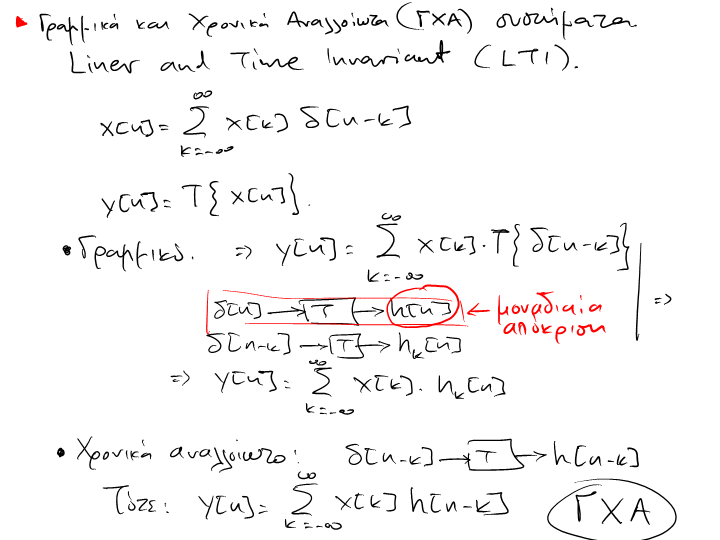 ▸ Γραμμικά και Χρονικά Αναλλοίωτα (ΓΧΑ) συστήματα
Liner and Time Invariant (LTI).
x[n] = ∑_{k=-∞}^{∞} x[k] δ[n-k]
y[n] = T{x[n]}.
• Γραμμικό. ⇒ y[n] = ∑_{k=-∞}^{∞} x[k] · T{δ[n-k]}
δ[n] → T → h[n] ← μοναδιαία απόκριση ⇒
δ[n-k] → T → h_k[n]
⇒ y[n] = ∑_{k=-∞}^{∞} x[k] · h_k[n]
• Χρονικά αναλλοίωτο: δ[n-k] → T → h[n-k]
Τότε: y[n] = ∑_{k=-∞}^{∞} x[k] h[n-k] ΓΧΑ